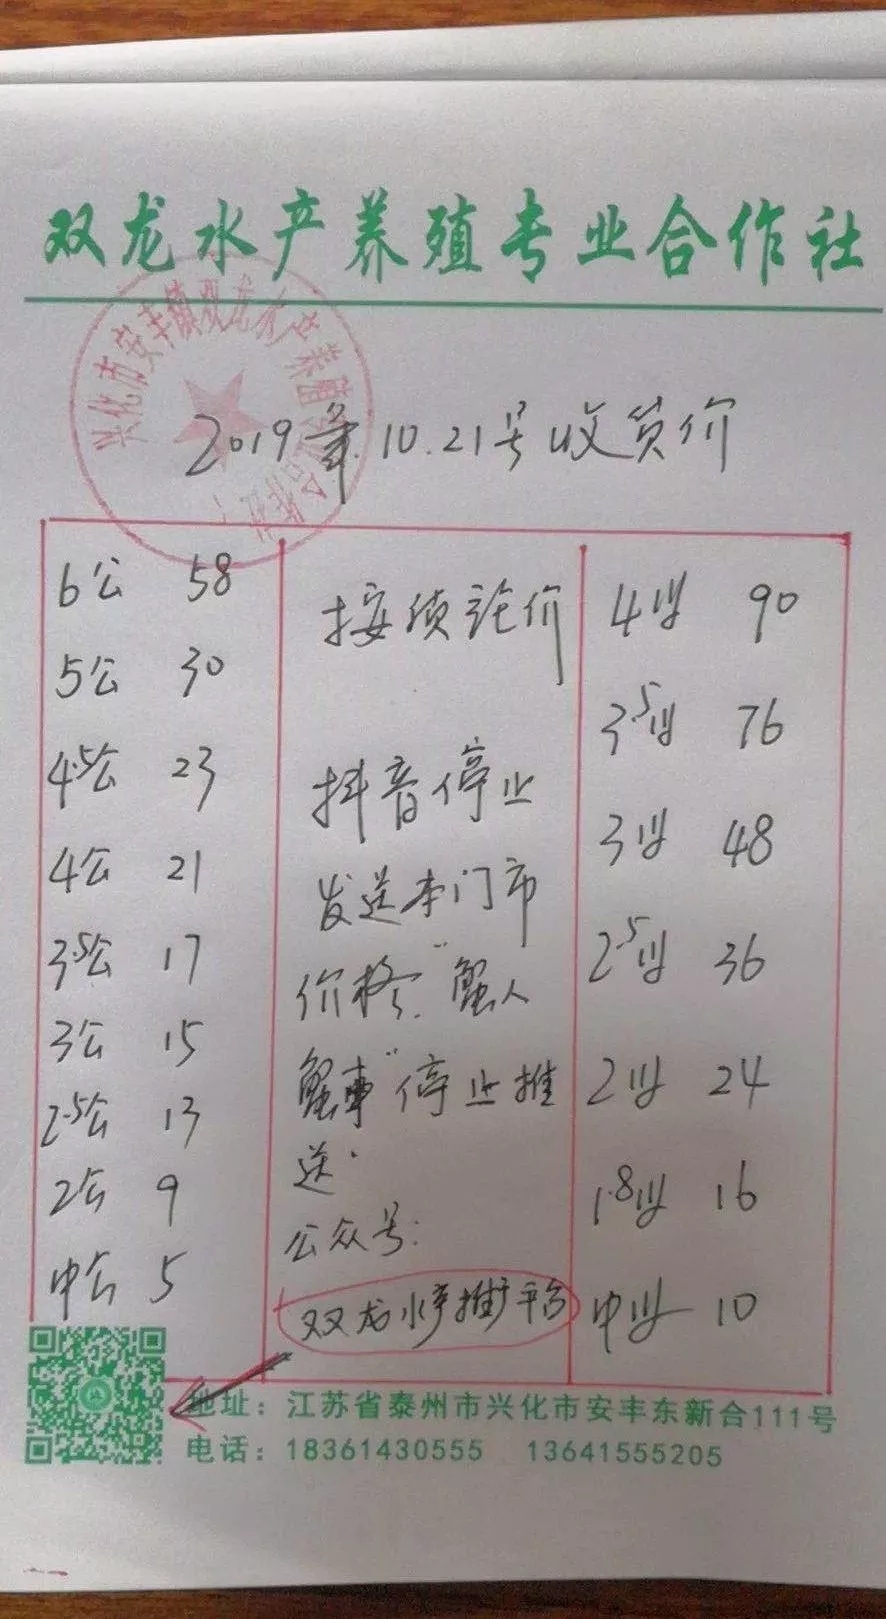 双龙水产养殖专业合作社
兴化市安丰镇双龙水产养殖专业合作社
2019年.10.21号收货价
6公 58
5公 30
4.5公 23
4公 21
3.5公 17
3公 15
2.5公 13
2公 9
中公 5
按质论价
抖音停止
发送本门市
价格."蟹人
蟹事"停止推
送.
公众号:
双龙水产推广平台
4母 90
3.5母 76
3母 48
2.5母 36
2母 24
1.8母 16
中母 10
地址：江苏省泰州市兴化市安丰东新合111号
电话：18361430555 13641555205